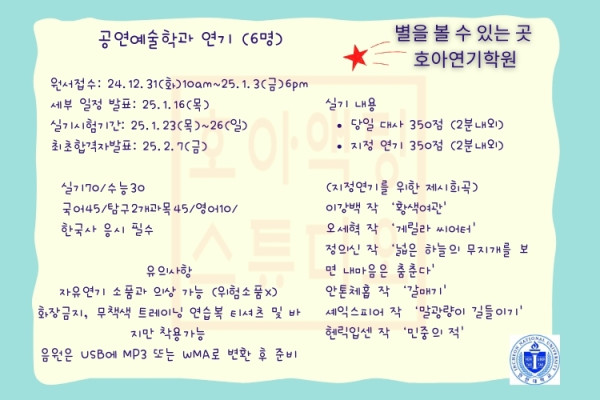 공연예술학과 연기 (6명)
별을 볼 수 있는 곳
호아연기학원
원서접수: 24.12.31(화)10am~25.1.3(금)6pm
세부 일정 발표: 25.1.16(목)
실기시험기간: 25.1.23(목)~26(일)
최초합격자발표: 25.2.7(금)
실기 내용
• 당일 대사 350점 (2분내외)
• 지정 연기 350점 (2분내외)
실기70/수능30
국어45/탐구2개과목45/영어10/
한국사 응시 필수
(지정연기를 위한 제시희곡)
이강백 작 '황색여관'
오세혁 작 '게릴라 씨어터'
정의신 작 '넓은 하늘의 무지개를 보
면 내마음은 춤춘다'
안톤체홉 작 '갈매기'
셰익스피어 작 '말괄량이 길들이기'
헨릭입센 작 '민중의 적'
유의사항
자유연기 소품과 의상 가능 (위험소품X)
화장금지, 무채색 트레이닝 연습복 티셔츠 및 바
지만 착용가능
음원은 USB에 MP3 또는 WMA로 변환 후 준비
호아액팅
스튜디오
INCHEON NATIONAL UNIVERSITY
인천대학교